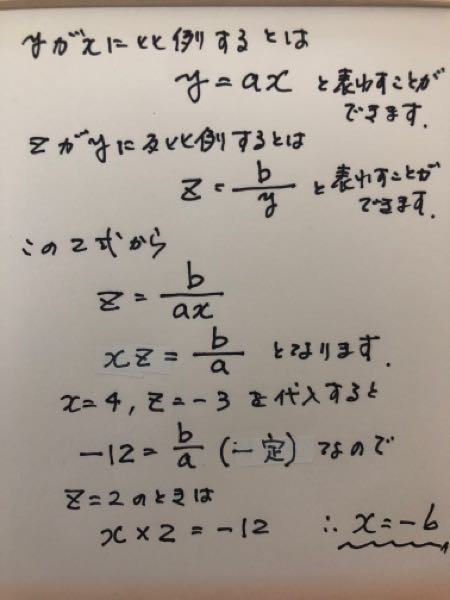 yがxに比例するとは
y=ax と表わすことが
できます.
zがyに反比例するとは
z = b/y と表わすことが
できます.
この2式から
z = b/ax
xz = b/a となります.
x=4, z=-3 を代入すると
-12 = b/a (一定) なので
z=2のときは
x×2=-12 ∴ x=-6